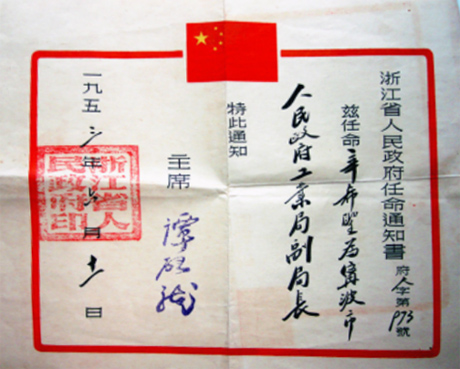 浙江省人民政府任命通知書
府人字第973號
兹任命辛希聖为寧波市
人民政府工業局副局長
特此通知
主席 譚啓龍
一九五 年 月十一日
浙江省人民政府印